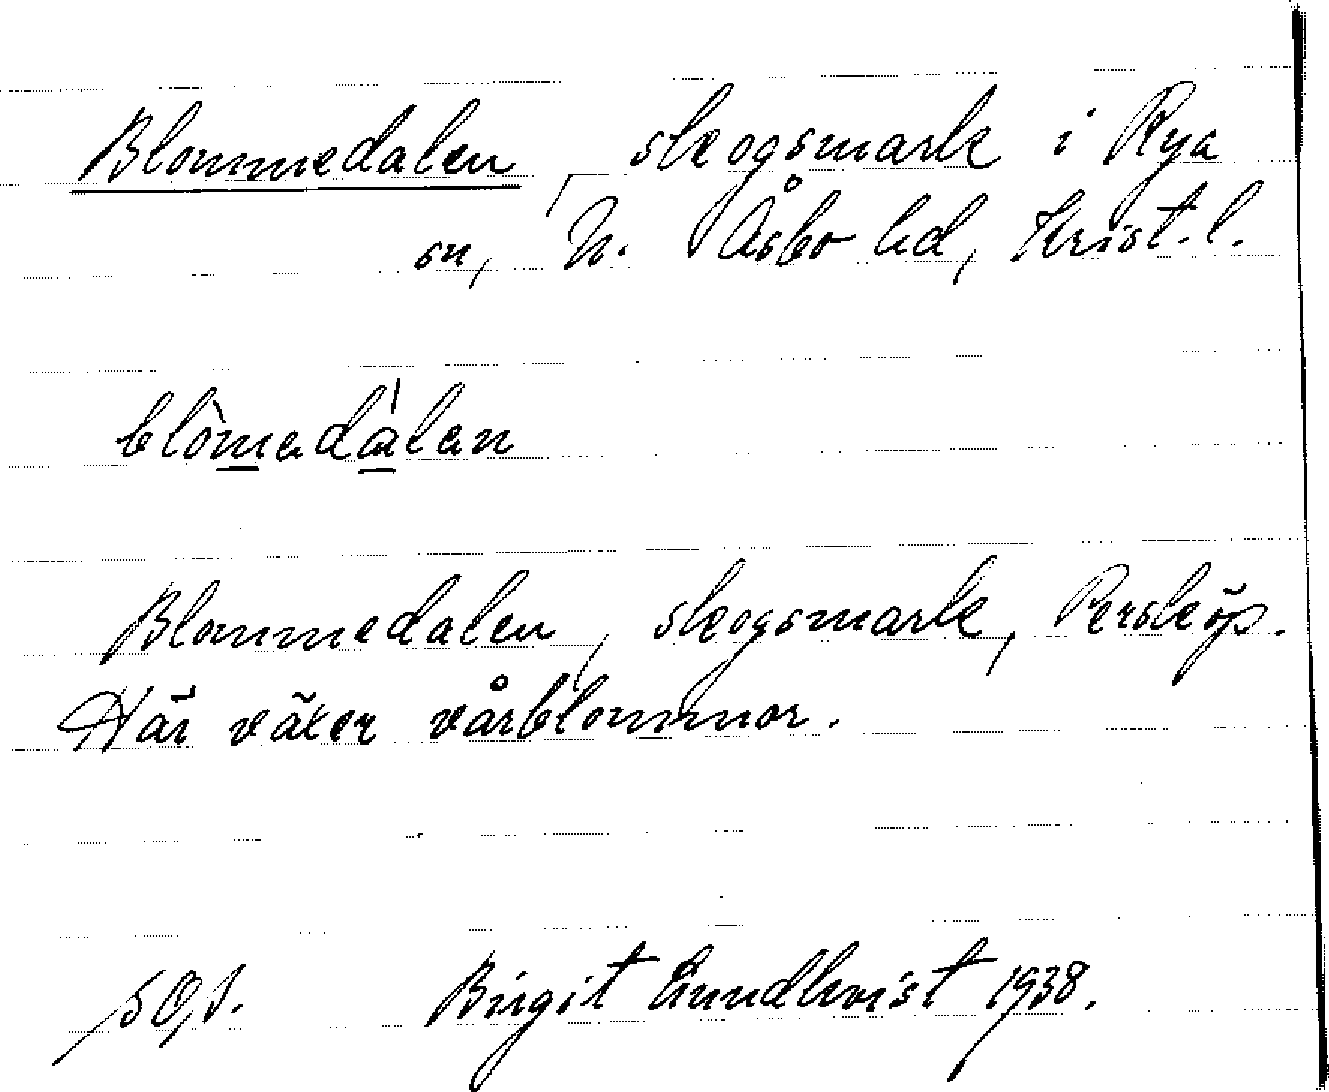 Blommedalen, skogsmark i Rya
sn, N. Åsbo hd, Krist. l.
blòmedàlen
Blommedalen, skogsmark, Persköp.
Här växer vårblommor.
Birgit Lundkvist 1938.